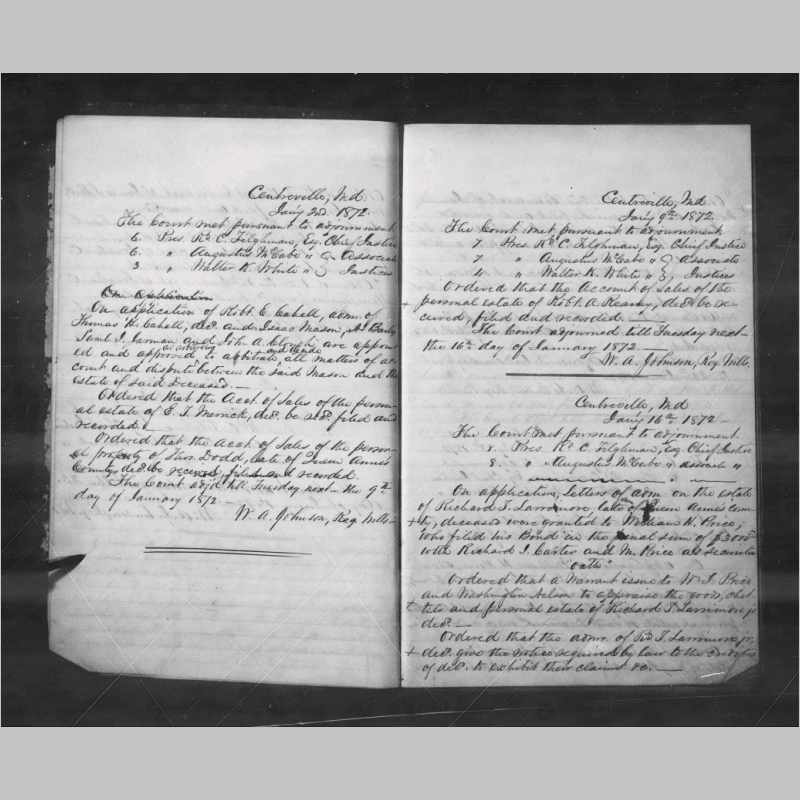 Centreville, Md
Jan'y 2nd 1872
The Court met pursuant to adjournment
6 Pres. Rd. C. Tilghman, Esq. Chief Justice
6. " Augustus McCabe " } Associate
3 " Walter K. White " } Justices
On application
On application of Robt. E. Cahell, admr. of
Thomas H. Cahell, decd. and Isaac Mason,
Saml. T. Jarman and John A. Clough are appoint
as arbitrators and decide
ed and approved to arbitrate all matters of ac
count and dispute between the said Mason and the
estate of said deceased.
Ordered that the Acct. of Sales of the person-
al estate of E. T. Merrick, decd. be recd. filed and
recorded.
Ordered that the Acct. of Sales of the person-
al property of Thos. Dodd, late of Queen Anne's
County, decd. be received, filed and recorded.
The Court adj'd till Tuesday next the 9th
day of January 1872
W. A. Johnson, Reg. Wills
Centreville, Md
Jan'y 9th 1872
The Court met pursuant to adjournment
7 Pres. Rd. C. Tilghman, Esq. Chief Justice
7 " Augustus McCabe " } Associate
4 " Walter K. White " } Justices
Ordered that the Account of Sales of the
+ personal estate of Robt. A. Kearney, decd. be re-
ceived, filed and recorded.
The Court adjourned till Tuesday next
the 16th day of January 1872
W. A. Johnson, Reg. Wills.
Centreville, Md
Jan'y 16th 1872
The Court met pursuant to adjournment
8 Pres. Rd. C. Tilghman, Esq. Chief Justice
8. " Augustus McCabe " associate "
On application, Letters of adm. on the estate
of Richard T. Larrimore, late of Queen Anne's coun
+ ty, deceased were granted to William H. Price,
who filed his Bond in the penal sum of $3000
with Richard J. Carter and M. Price as securities
"oath"
Ordered that a Warrant issue to W. T. Price
and Washington Nelson to appraise the goods, chat
+ tels and personal estate of Richard T. Larrimore jr
decd.
Ordered that the admr. of Rd. T. Larrimore jr,
+ decd. give the notice required by law to the creditors
of decd. to exhibit their claims &c.